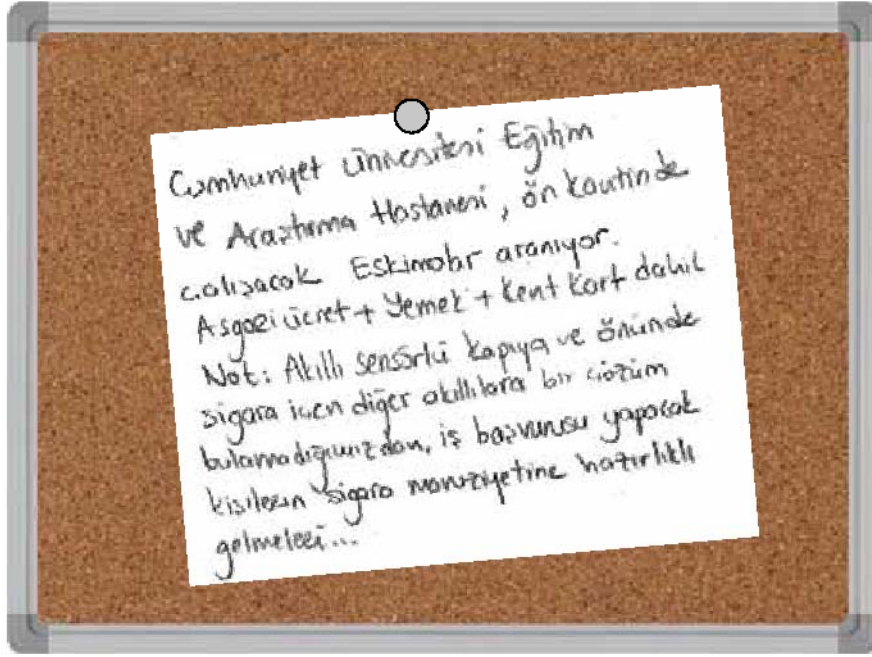 Cumhuriyet Üniversitesi Eğitim
ve Araştırma Hastanesi, ön kantinde
çalışacak Eskimolar aranıyor.
Asgari ücret + Yemek + Kent Kart dahil
Not: Akıllı sensörlü kapıya ve önünde
sigara içen diğer akıllılara bir çözüm
bulamadığımızdan, iş başvurusu yapacak
kişilerin sigara maruziyetine hazırlıklı
gelmeleri...